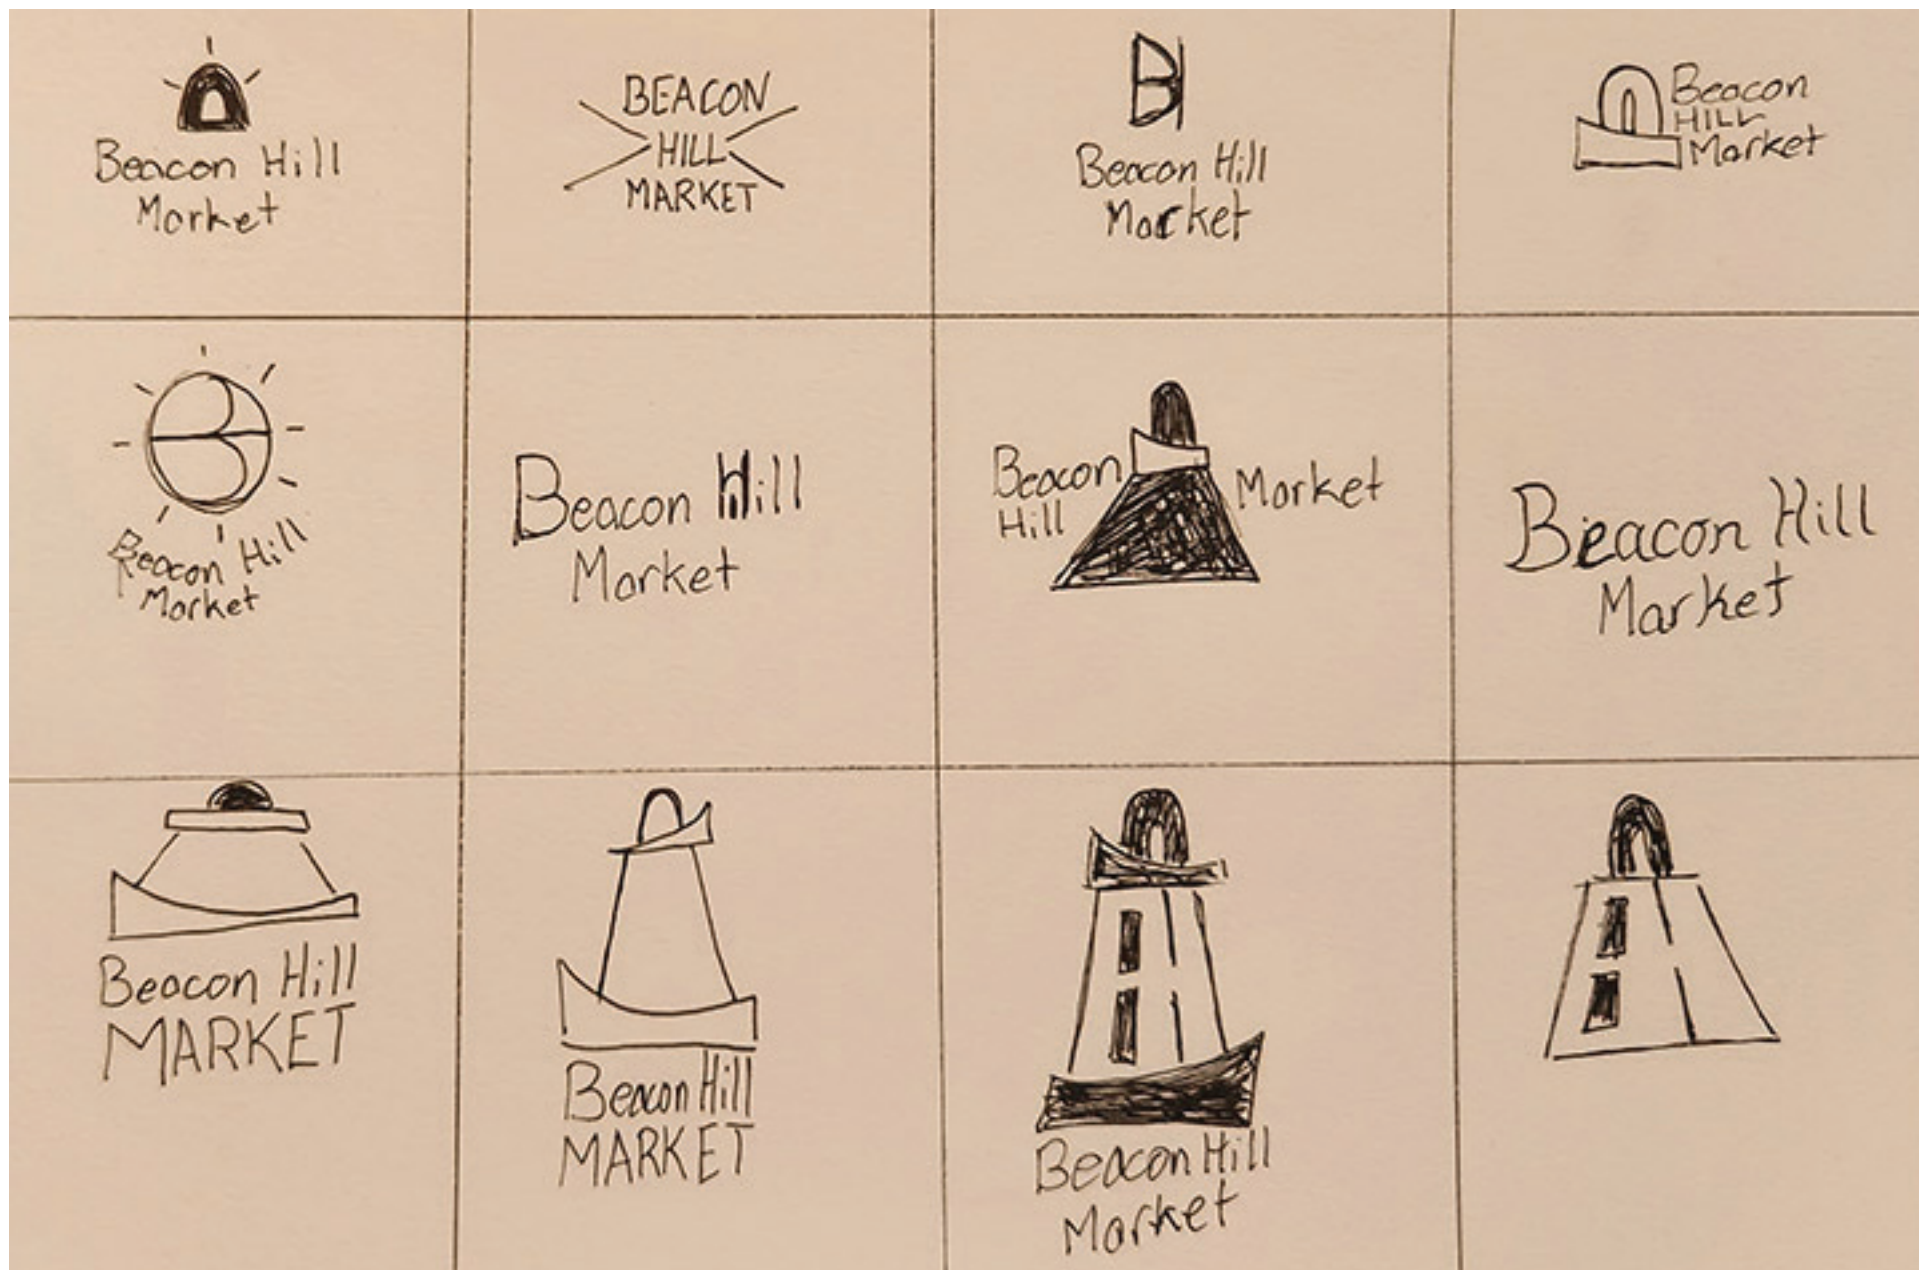 Beacon Hill
Market
BEACON
HILL
MARKET
B
Beacon Hill
Market
Beacon
HILL
Market
B
Beacon Hill
Market
Beacon Hill
Market
Beacon
Hill
Market
Beacon Hill
Market
Beacon Hill
MARKET
Beacon Hill
MARKET
Beacon Hill
Market